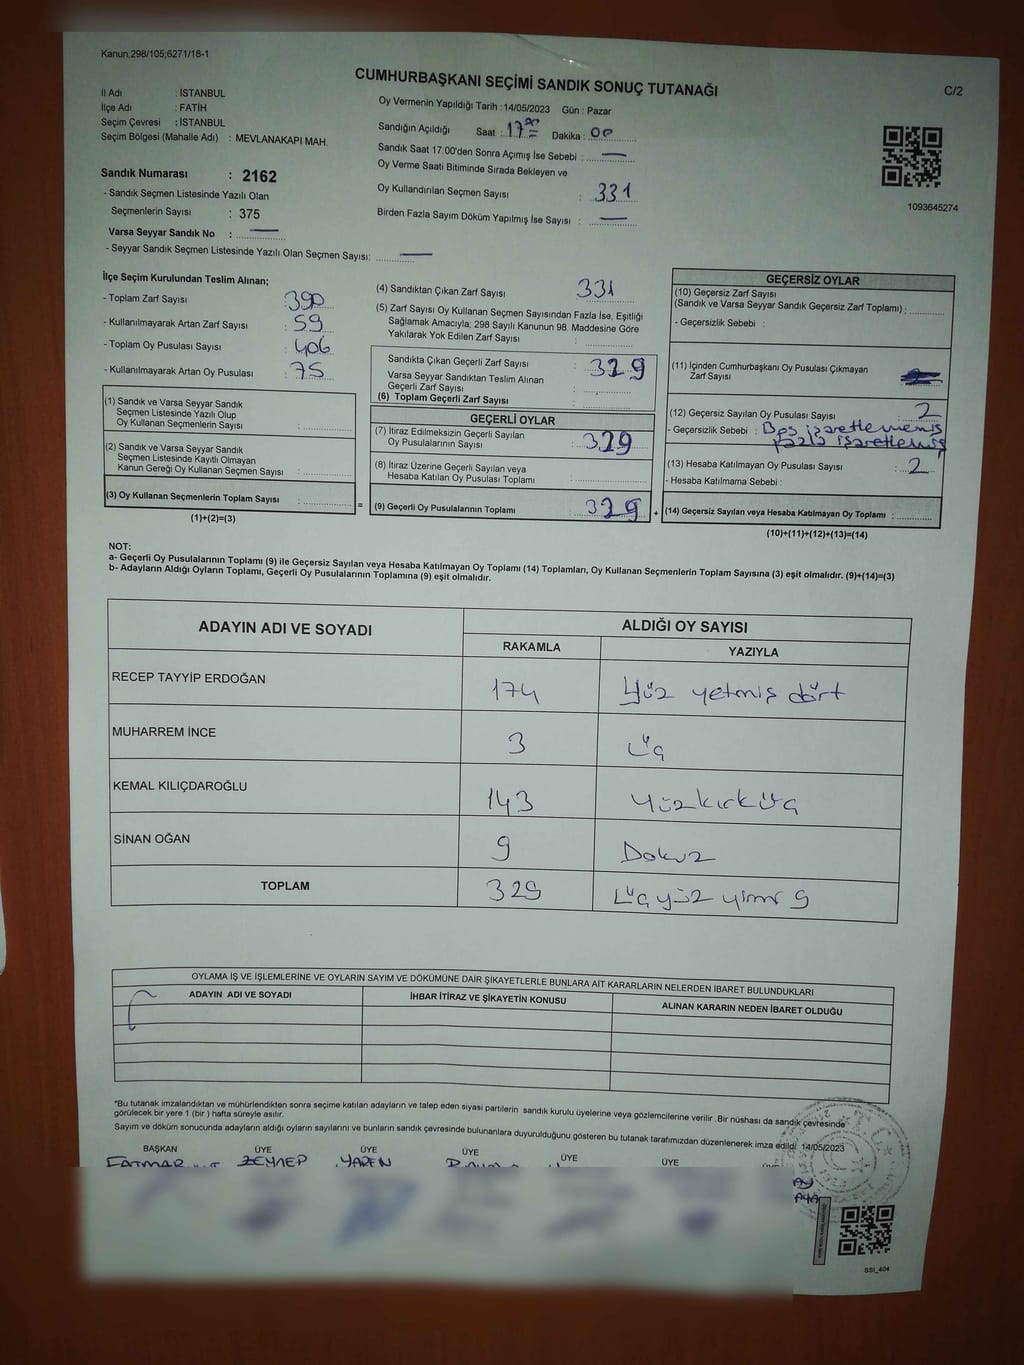 Kanun;298/105;6271/18-1
CUMHURBAŞKANI SEÇİMİ SANDIK SONUÇ TUTANAĞI
C/2
İl Adı : İSTANBUL
İlçe Adı : FATİH
Seçim Çevresi : İSTANBUL
Seçim Bölgesi (Mahalle Adı) : MEVLANAKAPI MAH.
Sandık Numarası : 2162
- Sandık Seçmen Listesinde Yazılı Olan
Seçmenlerin Sayısı : 375
Varsa Seyyar Sandık No : —
- Seyyar Sandık Seçmen Listesinde Yazılı Olan Seçmen Sayısı: —
Oy Vermenin Yapıldığı Tarih : 14/05/2023 Gün : Pazar
Sandığın Açıldığı Saat : 17 00 Dakika : 00
Sandık Saat 17:00'den Sonra Açımış İse Sebebi : —
Oy Verme Saati Bitiminde Sırada Bekleyen ve
Oy Kullandırılan Seçmen Sayısı : 331
Birden Fazla Sayım Döküm Yapılmış İse Sayısı : —
1093645274
İlçe Seçim Kurulundan Teslim Alınan;
- Toplam Zarf Sayısı : 390
- Kullanılmayarak Artan Zarf Sayısı : 59
- Toplam Oy Pusulası Sayısı : 406
- Kullanılmayarak Artan Oy Pusulası : 75
(1) Sandık ve Varsa Seyyar Sandık
Seçmen Listesinde Yazılı Olup
Oy Kullanan Seçmenlerin Sayısı :
(2) Sandık ve Varsa Seyyar Sandık
Seçmen Listesinde Kayıtlı Olmayan
Kanun Gereği Oy Kullanan Seçmen Sayısı :
(3) Oy Kullanan Seçmenlerin Toplam Sayısı :
(1)+(2)=(3)
=
(4) Sandıktan Çıkan Zarf Sayısı : 331
(5) Zarf Sayısı Oy Kullanan Seçmen Sayısından Fazla İse, Eşitliği
Sağlamak Amacıyla; 298 Sayılı Kanunun 98. Maddesine Göre
Yakılarak Yok Edilen Zarf Sayısı :
Sandıkta Çıkan Geçerli Zarf Sayısı : 329
Varsa Seyyar Sandıktan Teslim Alınan
Geçerli Zarf Sayısı :
(6) Toplam Geçerli Zarf Sayısı :
GEÇERLİ OYLAR
(7) İtiraz Edilmeksizin Geçerli Sayılan
Oy Pusulalarının Sayısı : 329
(8) İtiraz Üzerine Geçerli Sayılan veya
Hesaba Katılan Oy Pusulası Toplamı :
(9) Geçerli Oy Pusulalarının Toplamı : 329
+
GEÇERSİZ OYLAR
(10) Geçersiz Zarf Sayısı
(Sandık ve Varsa Seyyar Sandık Geçersiz Zarf Toplamı) :
- Geçersizlik Sebebi :
(11) İçinden Cumhurbaşkanı Oy Pusulası Çıkmayan
Zarf Sayısı :
(12) Geçersiz Sayılan Oy Pusulası Sayısı : 2
- Geçersizlik Sebebi : Boş işaretlememiş
fazla işaretlemiş
(13) Hesaba Katılmayan Oy Pusulası Sayısı : 2
- Hesaba Katılmama Sebebi :
(14) Geçersiz Sayılan veya Hesaba Katılmayan Oy Toplamı :
(10)+(11)+(12)+(13)=(14)
NOT:
a- Geçerli Oy Pusulalarının Toplamı (9) ile Geçersiz Sayılan veya Hesaba Katılmayan Oy Toplamı (14) Toplamları, Oy Kullanan Seçmenlerin Toplam Sayısına (3) eşit olmalıdır. (9)+(14)=(3)
b- Adayların Aldığı Oyların Toplamı, Geçerli Oy Pusulalarının Toplamına (9) eşit olmalıdır.
ADAYIN ADI VE SOYADI ALDIĞI OY SAYISI
RAKAMLA YAZIYLA
RECEP TAYYİP ERDOĞAN 174 Yüz yetmiş dört
MUHARREM İNCE 3 Üç
KEMAL KILIÇDAROĞLU 143 Yüzkırküç
SİNAN OĞAN 9 Dokuz
TOPLAM 329 Üçyüz yirmi 9
OYLAMA İŞ VE İŞLEMLERİNE VE OYLARIN SAYIM VE DÖKÜMÜNE DAİR ŞİKAYETLERLE BUNLARA AİT KARARLARIN NELERDEN İBARET BULUNDUKLARI
ADAYIN ADI VE SOYADI İHBAR İTİRAZ VE ŞİKAYETİN KONUSU ALINAN KARARIN NEDEN İBARET OLDUĞU
*Bu tutanak imzalandıktan ve mühürlendikten sonra seçime katılan adayların ve talep eden siyasi partilerin sandık kurulu üyelerine veya gözlemcilerine verilir .Bir nüshası da sandık çevresinde
görülecek bir yere 1 (bir ) hafta süreyle asılır.
Sayım ve döküm sonucunda adayların aldığı oyların sayılarını ve bunların sandık çevresinde bulunanlara duyurulduğunu gösteren bu tutanak tarafımızdan düzenlenerek imza edildi. 14/05/2023
BAŞKAN ÜYE ÜYE ÜYE ÜYE ÜYE
ZEYNEP YAREN
SSI_404